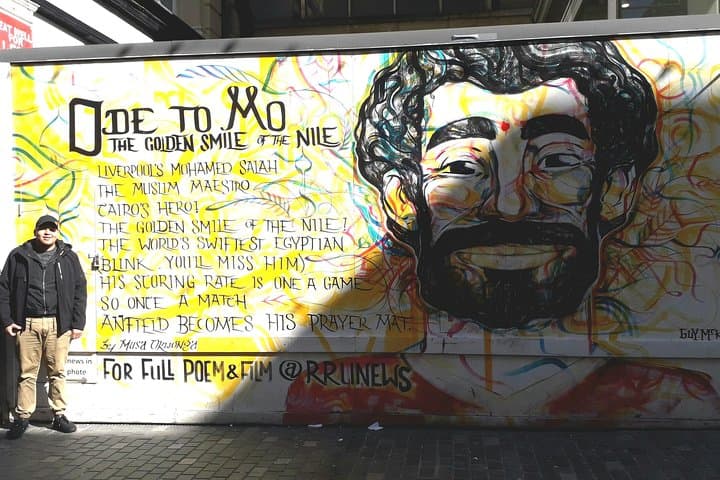 EAT WELL
FOR
ODE TO MO
THE GOLDEN SMILE OF THE NILE
LIVERPOOL'S MOHAMED SALAH
THE MUSLIM MAESTRO
CAIRO'S HERO!
THE GOLDEN SMILE OF THE NILE!
THE WORLD'S SWIFTEST EGYPTIAN
(BLINK, YOU'LL MISS HIM)
HIS SCORING RATE IS ONE A GAME
SO ONCE A MATCH
ANFIELD BECOMES HIS PRAYER MAT.
By MUSA OKWONGA
news in
photo
FOR FULL POEM & FILM @RRUNEWS
GUY.McK